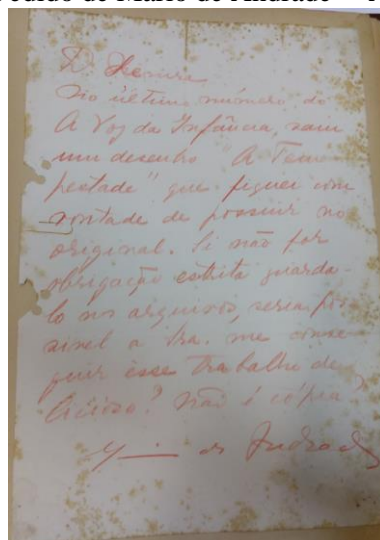 Pedido de Mário de Andrade
D. Heloisa
No último número do
A Voz da Infância, saiu
um desenho "A Tem-
pestade" que fiquei com
vontade de possuir no
original. Si não for
obrigação estrita guarda-
lo nos arquivos, seria pos-
sivel a sra. me conse-
guir esse trabalho de-
licioso? Não é cópia?
de Andrade